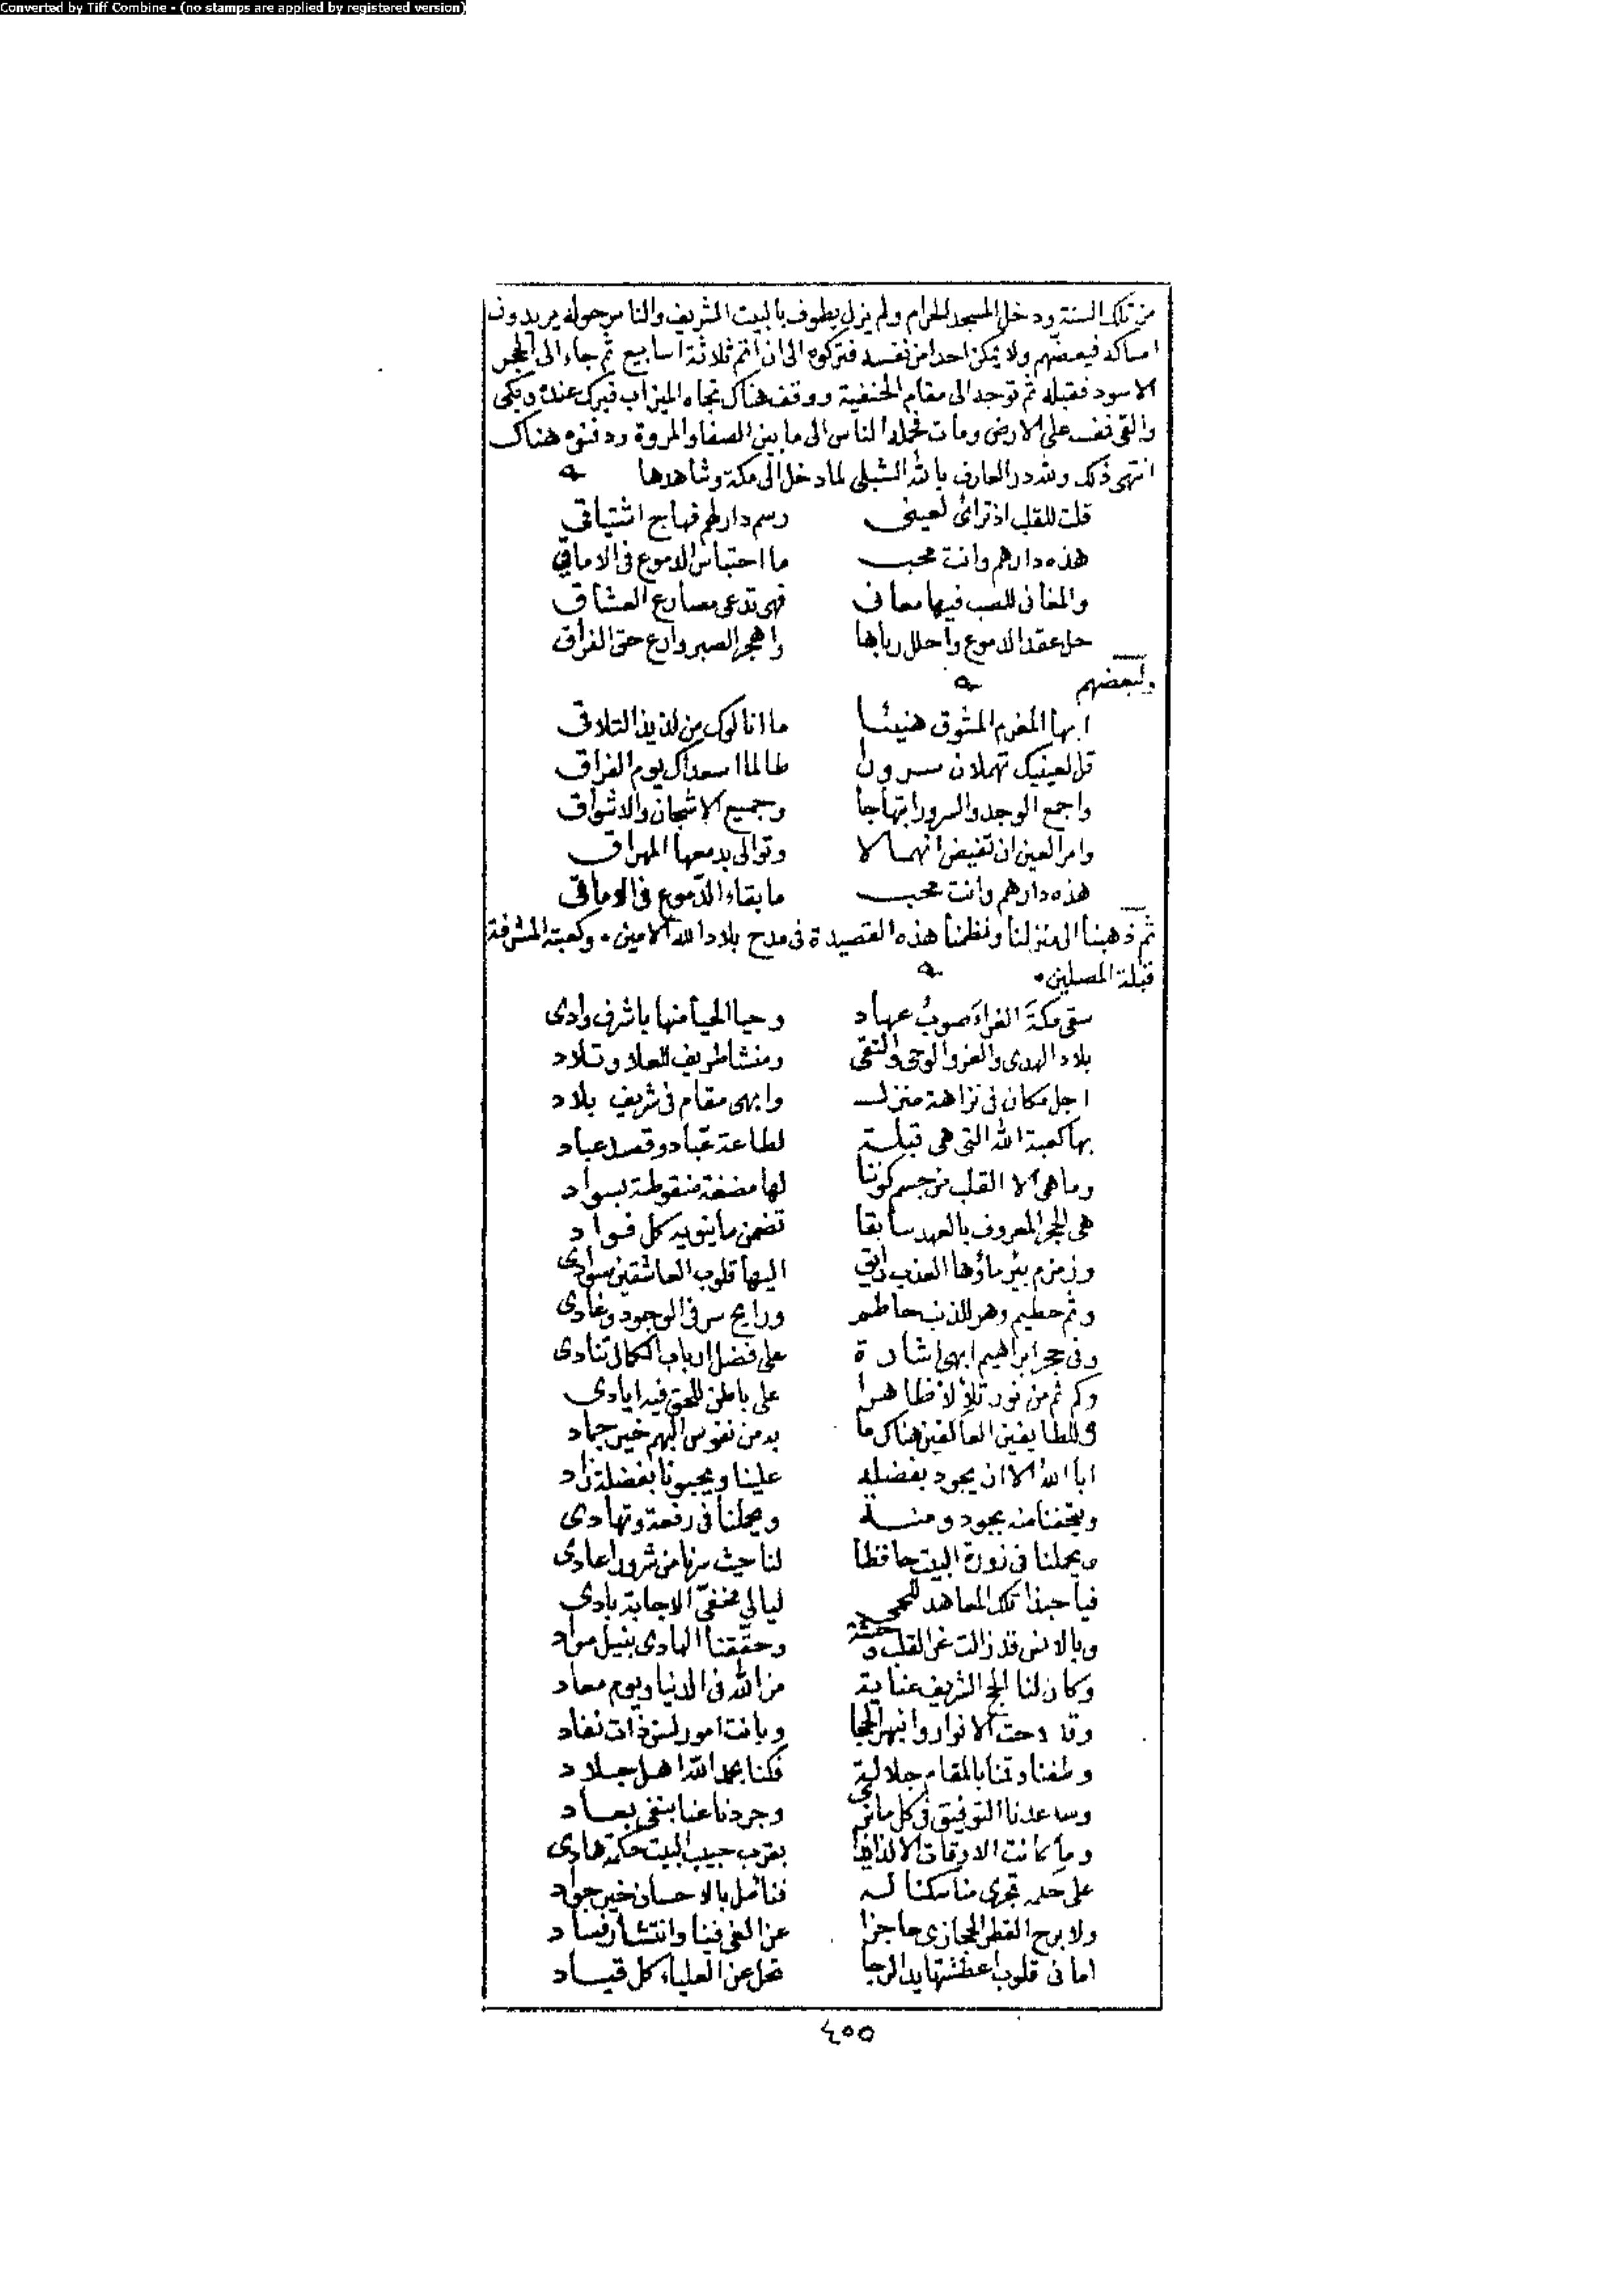 Converted by Tiff Combine - (no stamps are applied by registered version)
من تلك السنة ودخل المسجد الحرام ولم يزل يطوف بالبيت الشريف والناس حوله يريدون
امساكه فيعضهم ولا يمكن احدا من نفسه فتركوه الى ان اتم ثلاثة اسابيع ثم جاء الى الحجر
الاسود فقبله ثم توجه الى مقام الحنفية ووقف هناك تجاه الميزاب فبرك عنده وبكى
والقى نفسه على الارض ومات فحمله الناس الى ما بين الصفا والمروة ودفنوه هناك
انتهى ذلك ولله در العارف بالله الشبلي لما دخل الى مكة وشاهدها
قلت للقلب اذ ترائ لعينى رسم دار لهم فهاج اشتياقي
هذه دارهم وانت محب ما احتباس الدموع فى الاماقي
والمغانى للصب فيها معانى فهى تدعى مصارع العشاق
حل عقد الدموع واحلل رباها واهجر الصبر وارع حق الفراق
ولبعضهم
ايها المغرم المشوق هنيئا ما انالوك من لذيذ التلاقى
قل لعينيك تهملان سرورا طالما اسعداك يوم الفراق
واجمع الوجد والسرور ابتهاجا وجميع الاشجان والاشواق
وامر العين ان تفيض انهمالا وتوالى بدمعها المهراق
هذه دارهم وانت محب ما بقاء الدموع فى الاماقى
ثم ذهبنا الى منزلنا ونظمنا هذه القصيدة فى مدح بلاد الله الامين ۰ وكعبته المشرفة
قبلة المصلين ۰
سقى مكة الغراء صوب عهاد وحيا الحيا منها باشرف وادى
بلاد الهدى والعز والوحى والتقى ومنشا طريف للعلا وتلاد
اجل مكان فى نزاهة منزل وابهى مقام فى شريف بلاد
بها كعبة الله التى هى قبلة لطاعة عباد وقصد عباد
وما هى الا القلب من جسم كوننا لها مضغة منقوطة بسواد
هى الحجر المعروف بالعهد سابقا تضمن ما ينويه كل فواد
وزمزم بئر ماؤها العذب اليها قلوب العاشقين
وثم حطيم وهو للذنب حاطم ورايح سر فى الوجود وغادى
وفى حجر ابراهيم ابهى اشارة على فضل ارباب الكمال تنادى
وكم ثم من نور تلألأ ظاهرا على باطن للحق فيه ايادى
وللطايفين العاكفين هناك ما به من نفوس
ابا الله الا ان يجود بفضله علينا ويحبونا بفضلة زاد
ويتحفنا منه بجود ومنة ويجعلنا فى رفعة وتهادى
ويجعلنا فى زورة البيت حافظا لنا حيث سرنا من شرور اعادى
فيا حبذا تلك المعاهد للحمى ليالى مخفى الاجابة بادى
وبالانس قد زالت عن القلب وحشة وحققنا الهادى بنيل مراد
وكان لنا الحج الشريف عناية من الله فى الدنيا ويوم معاد
وقد الانوار وانبهر الحجا وبانت امور لسن ذات نفاد
وطفنا وقمنا بالمقام جلالة فكنا بحمد الله اهل جلاد
وساعدنا التوفيق فى كل مانرى وجردنا عنا بنفى بعاد
وما كانت الاوقات الا لذايذا بقرب حبيب البيت
على حلة تجرى مناسكنا له فنامل بالاحسان خير جواد
ولا برح القطر الحجازى حاجزا عن الغى فينا وانتشار فساد
امانى قلوب يد الرجا تحل عن العلياء كل قياد
٤٥٥